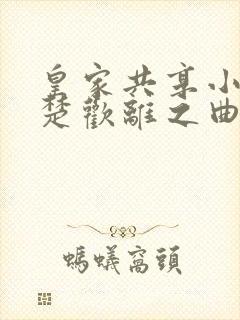 皇家共享小
楚歡離之曲
螞蟻窩頭